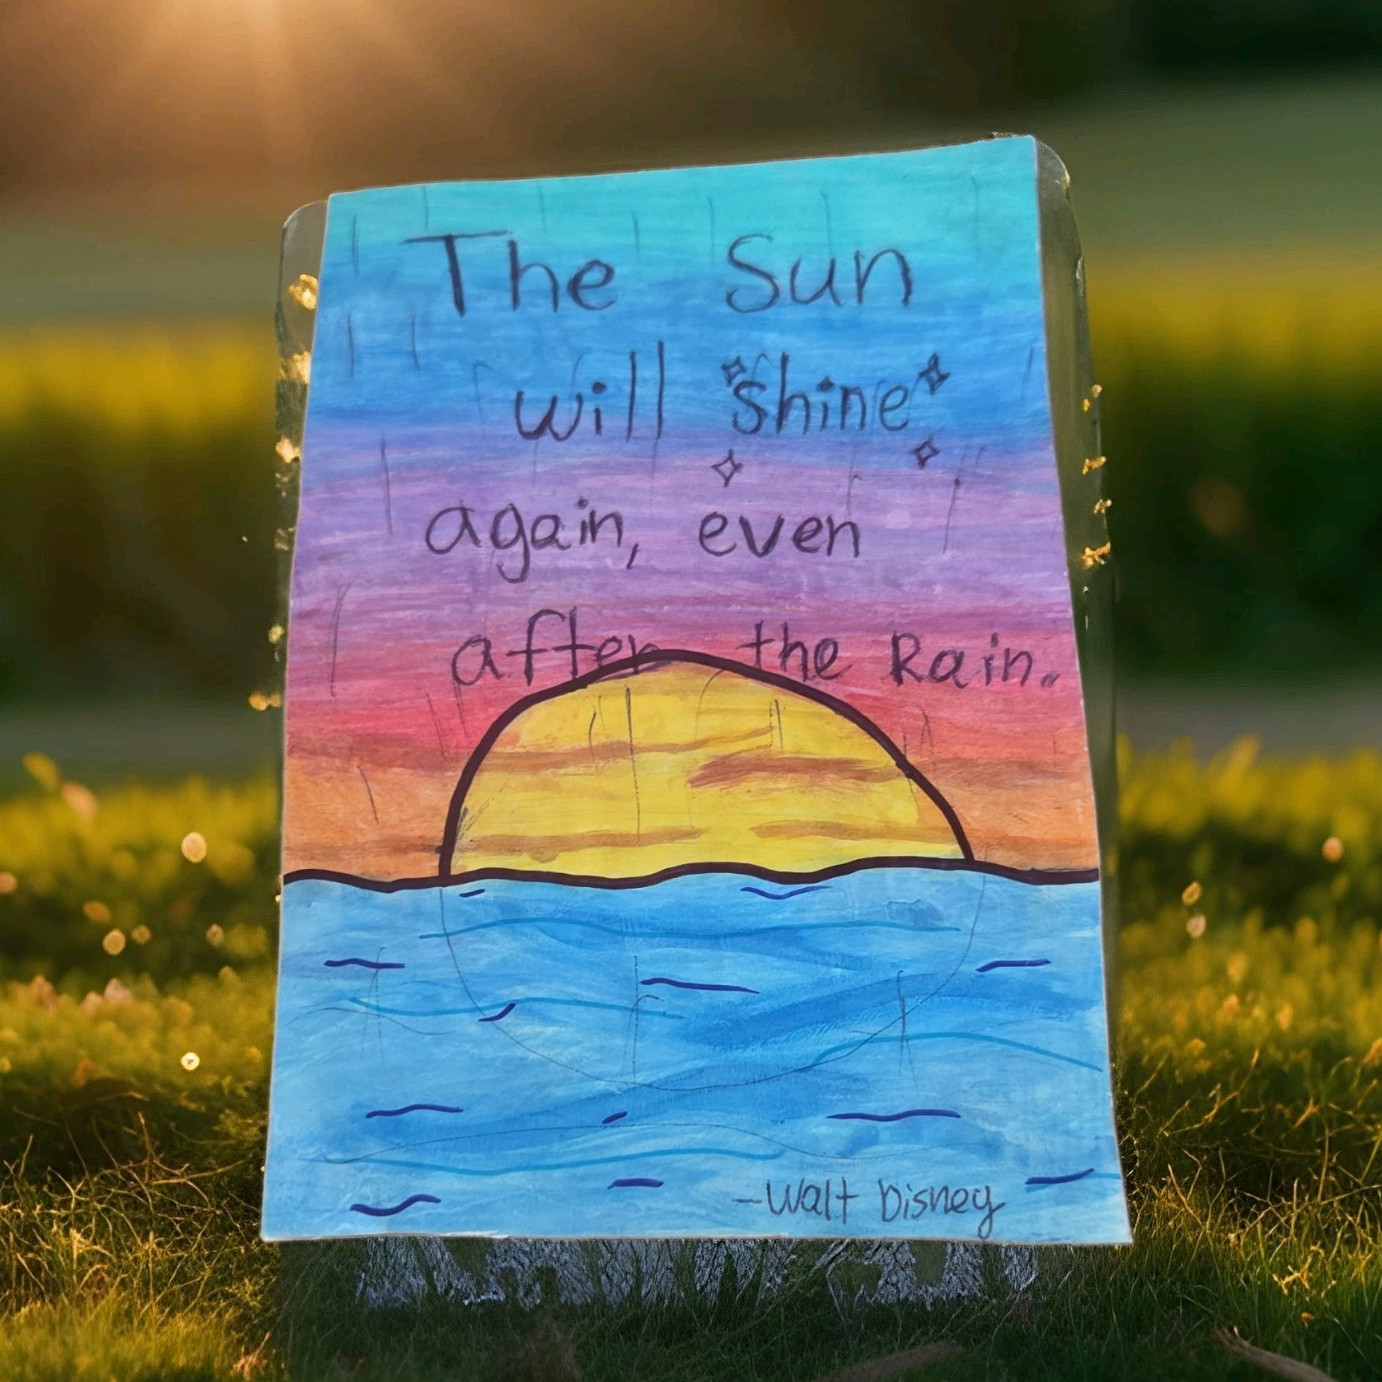 The Sun
will shine
again, even
after the Rain.
-Walt Disney